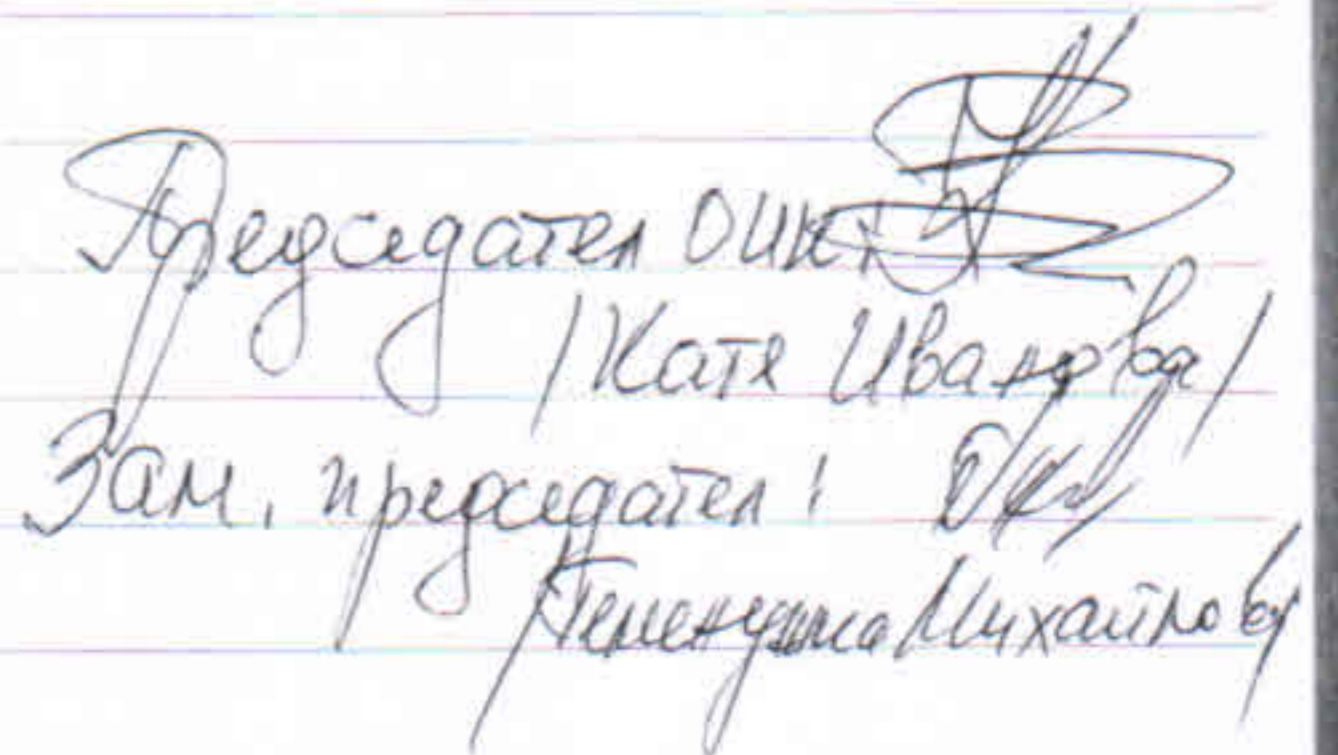 Председател ОИК:
/Катя Иванова/
Зам. председател:
/Теменужка Михайлова/